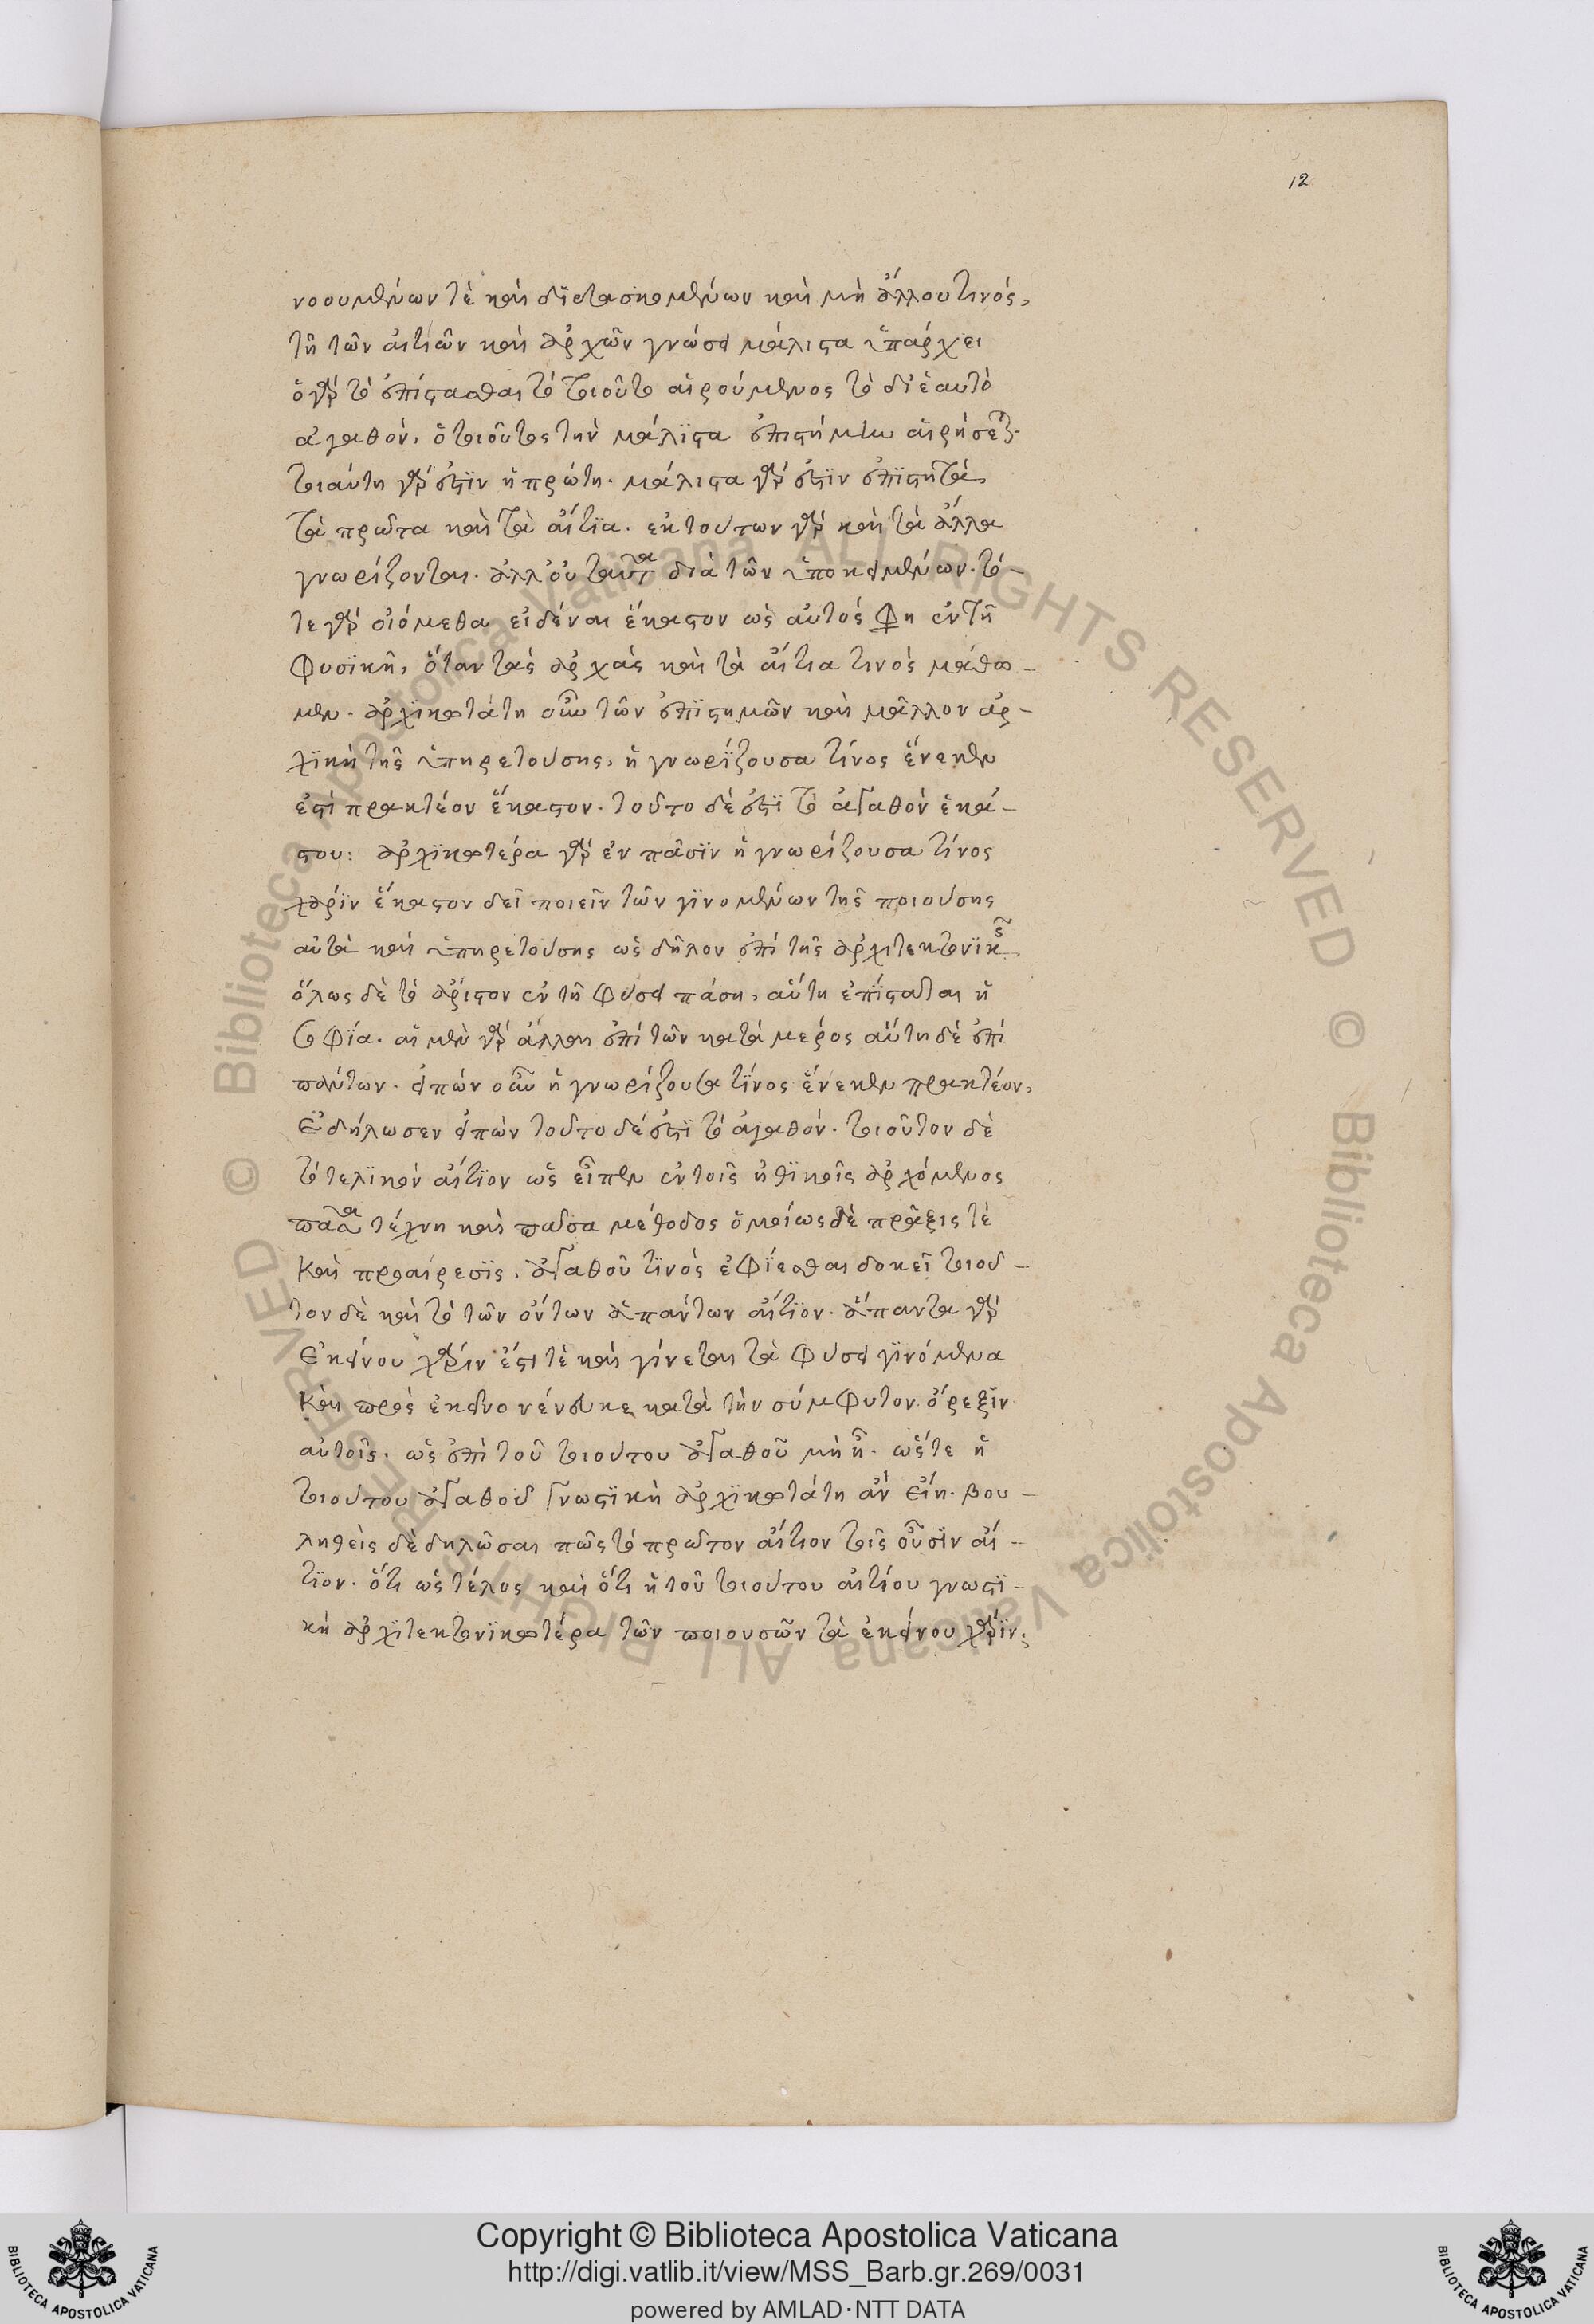 12
νοουμένων τὲ καὶ διδασκομένων καὶ μὴ ἄλλου τινός,
τῆ τῶν αἰτιῶν καὶ ἀρχῶν γνώσει μάλιστα ὑπάρχει
ὁ γὰρ τὸ ἐπίστασθαι τὸ τοιοῦτο αἱρούμενος τὸ δι ἑαυτὸ
ἀγαθόν, ὁ τοιοῦτος τὴν μάλϊστα ἐπιστήμην αἱρήσεται.
τοιαύτη γάρ ἐστϊν ἡ πρώτη. μάλιστα γάρ ἐστϊν ἐπϊστητὰ
τὰ πρῶτα καὶ τὰ αἴτϊα. εκ τούτων γὰρ καὶ τὰ ἄλλα
γνωρίζονται. ἀλλ οὐ ταῦτα διὰ τῶν ὑποκειμένων. τό-
τε γὰρ οἰόμεθα εἰδέναι ἕκαστον ὡς αὐτός φη ἐν τῆ
φυσϊκῆ, ὅταν τὰς ἀρχὰς καὶ τὰ αἴτια τινὸς μάθω-
μεν. ἀρχϊκωτάτη οὖν τῶν ἐπϊστημῶν καὶ μᾶλλον ἀρ-
χϊκὴ τῆς ὑπηρετούσης, ἡ γνωρϊζουσα τίνος ἕνεκεν
ἐστὶ πρακτέον ἕκαστον. τοῦτο δέ ἐστϊ τὸ ἀγαθὸν ἑκά-
στου: ἀρχϊκωτέρα γὰρ ἐν πᾶσϊν ἡ γνωρίζουσα τίνος
χάρϊν ἕκαστον δεῖ ποιεῖν τῶν γϊνομένων τῆς ποιούσης
αὐτὰ καὶ ὑπηρετούσης ὡς δῆλον ἐπὶ τῆς ἀρχιτεκτονϊκῆς,
ὅλως δὲ τὸ ἄριστον ἐν τῆ φύσει πάση, αὕτη ἐπίσταται ἡ
σοφΐα. αἱ μὲν γὰρ ἄλλαι ἐπὶ τῶν κατὰ μέρος αὕτη δὲ ἐπὶ
πάντων. εἰπὼν οὖν ἡ γνωρίζουσα τΐνος ἕνεκεν πρακτέον,
ἐδήλωσεν εἰπὼν τοῦτο δέ ἐστϊ τὸ ἀγαθόν. τοιοῦτον δὲ
τὸ τελϊκὸν αἴτϊον ὡς εἶπεν ἐν τοῖς ἠθϊκοῖς ἀρχόμενος
πᾶσα τέχνη καὶ πᾶσα μέθοδος ὁμοίως δὲ πρᾶξις τὲ
καὶ προαίρεσϊς, ἀγαθοῦ τϊνὸς ἐφΐεσθαι δοκεῖ τοιοῦ-
τον δὲ καὶ τὸ τῶν ὄντων ἁπάντων αἴτϊον. ἅπαντα γὰρ
ἐκείνου χάριν ἔστι τὲ καὶ γίνεται τὰ φύσει γϊνόμενα
καὶ πρὸς ἐκεῖνο νένευκε κατὰ τὴν σύμφυτον ὄρεξϊν
αὐτοῖς. ὡς ἐπὶ τοῦ τοιούτου ἀγαθοῦ μὴ ᾖ. ὥστε ἡ
τοιούτου ἀγαθοῦ γνωστϊκὴ ἀρχϊκωτάτη ἂν εἴη. βου-
ληθεὶς δὲ δηλῶσαι πῶς τὸ πρῶτον αἴτιον τοῖς οὖσϊν αἴ-
τϊον. ὅτι ὡς τέλος καὶ ὅτι ἡ τοῦ τοιούτου αἰτίου γνωστϊ-
κὴ ἀρχϊτεκτονϊκωτέρα τῶν ποιουσῶν τὰ ἐκείνου χάρϊν,
Copyright © Biblioteca Apostolica Vaticana
http://digi.vatlib.it/view/MSS_Barb.gr.269/0031
powered by AMLAD·NTT DATA
BIBLIOTECA APOSTOLICA VATICANA
BIBLIOTECA APOSTOLICA VATICANA
© Biblioteca Apostolica Vaticana ALL RIGHTS RESERVED © Biblioteca Apostolica Vaticana ALL RIGHTS RESERVED